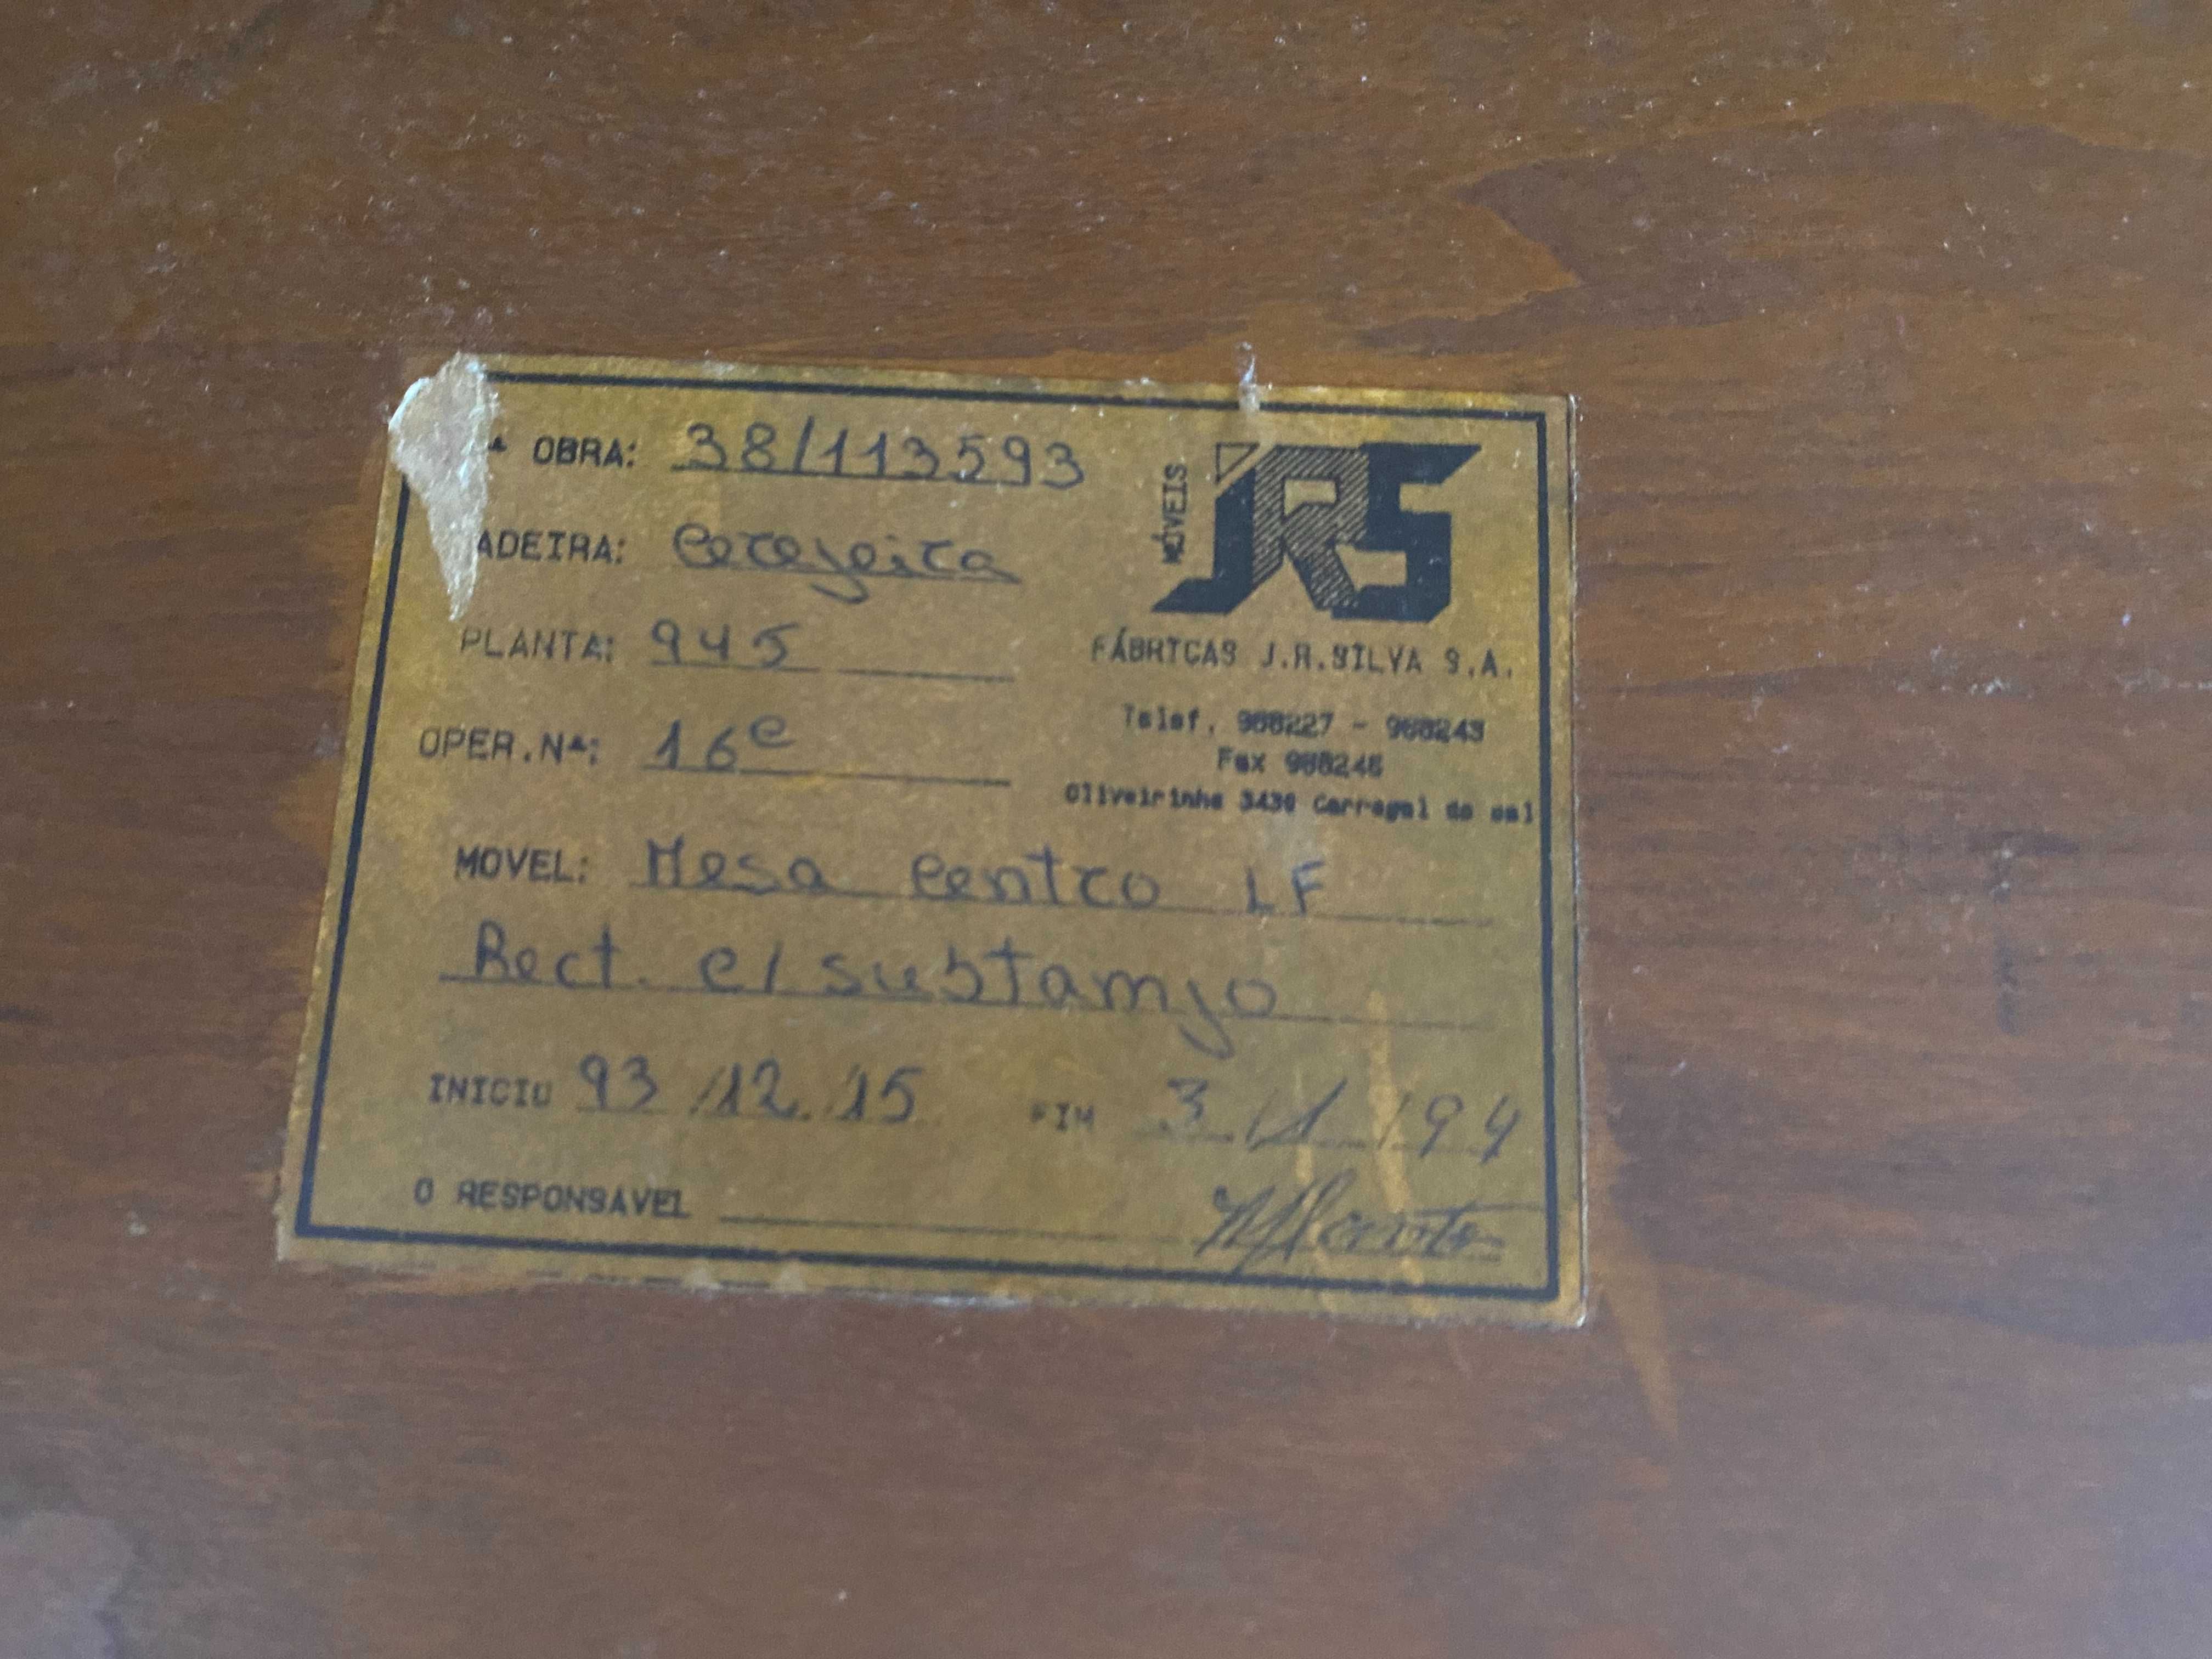 ª OBRA: 38/113593
ADEIRA: Cerejeira
PLANTA: 945
OPER.Nª: 16e
MÓVEIS
JRS
FÁBRICAS J.R.SILVA S.A.
Telef. 968227 - 968243
Fax 968246
Oliveirinha 3430 Carregal do sal
MOVEL: Mesa Centro LF
Rect. c/ sustamjo
INICIO 93/12/15 FIM 3/1/94
O RESPONSAVEL